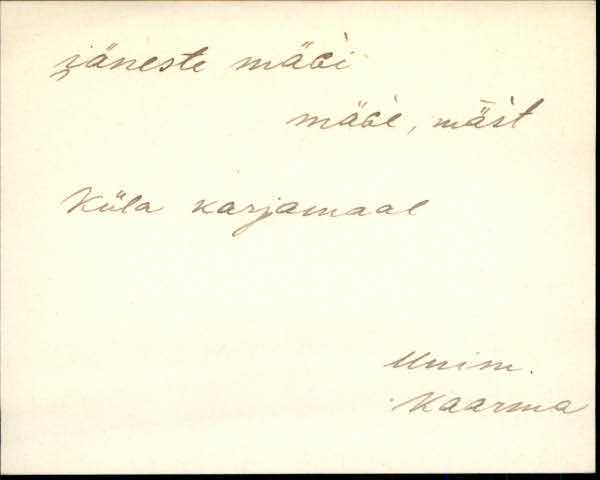 jäneste mäɢi
mäɢe,
Küla karjamaal
Unim.
Kaarma